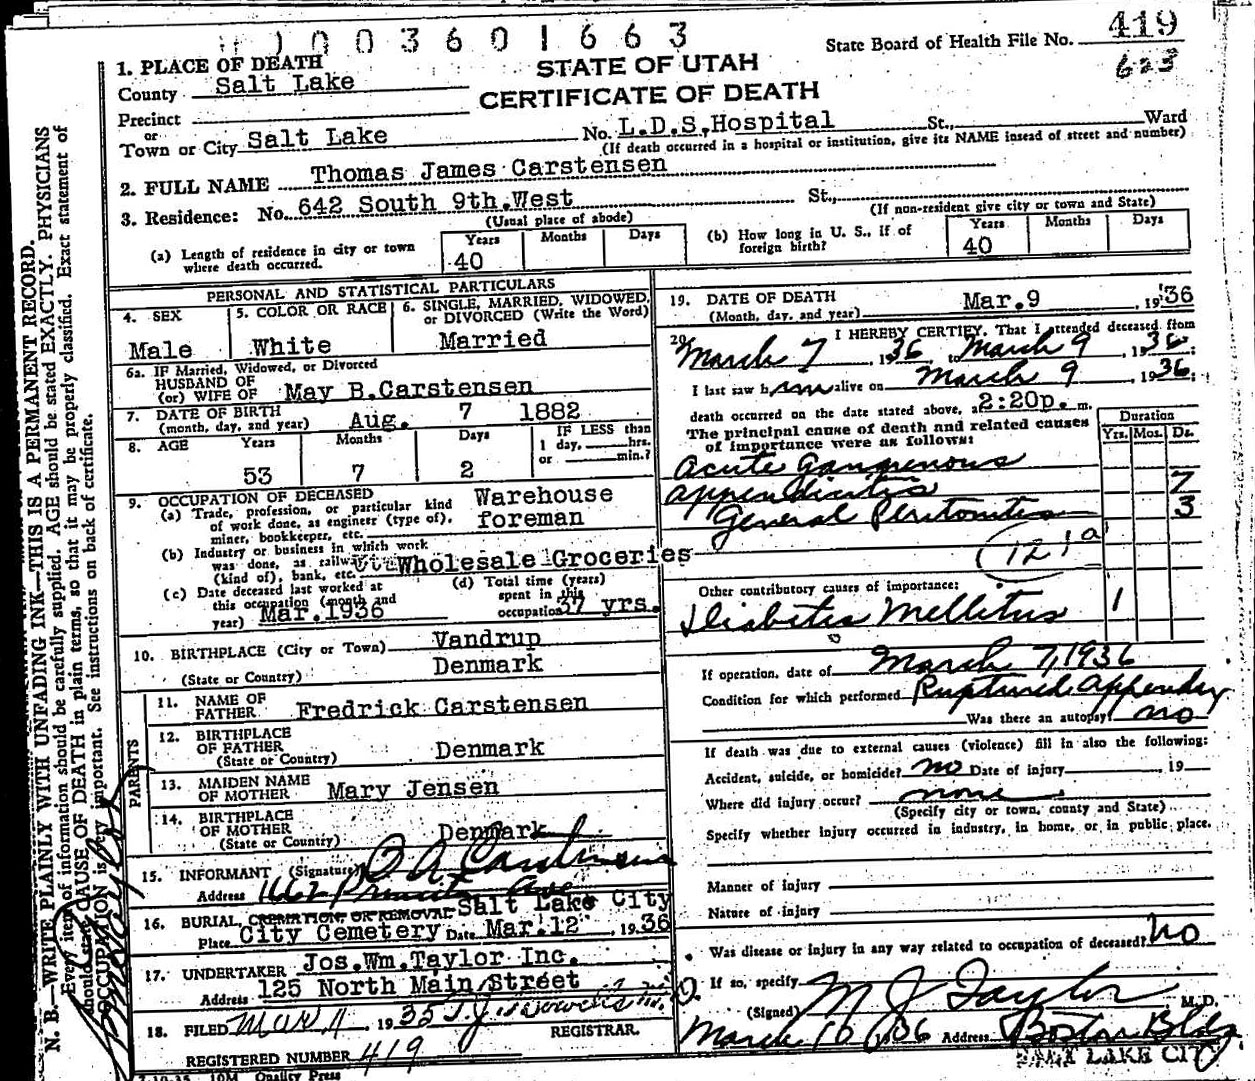 1003601663
State Board of Health File No. 419
623
STATE OF UTAH
CERTIFICATE OF DEATH
1. PLACE OF DEATH
County Salt Lake
Precinct
or
Town or City Salt Lake No. L.D.S. Hospital St., Ward
(If death occurred in a hospital or institution, give its NAME insead of street and number)
2. FULL NAME Thomas James Carstensen
3. Residence: No. 642 South 9th. West St.,
(Usual place of abode) (If non-resident give city or town and State)
(a) Length of residence in city or town where death occurred. Years 40 Months Days
(b) How long in U. S., if of foreign birth? Years 40 Months Days
PERSONAL AND STATISTICAL PARTICULARS
4. SEX Male
5. COLOR OR RACE White
6. SINGLE, MARRIED, WIDOWED, or DIVORCED (Write the Word) Married
6a. IF Married, Widowed, or Divorced
HUSBAND OF
(or) WIFE OF May B. Carstensen
7. DATE OF BIRTH
(month, day, and year) Aug. 7 1882
8. AGE Years 53 Months 7 Days 2 IF LESS than 1 day, hrs. or min.?
9. OCCUPATION OF DECEASED
(a) Trade, profession, or particular kind of work done, as engineer (type of), miner, bookkeeper, etc. Warehouse foreman
(b) Industry or business in which work was done, as railway (kind of), bank, etc. Wholesale Groceries
(c) Date deceased last worked at this occupation (month and year) Mar. 1936
(d) Total time (years) spent in this occupation 37 yrs.
10. BIRTHPLACE (City or Town) Vandrup
(State or Country) Denmark
PARENTS
11. NAME OF FATHER Fredrick Carstensen
12. BIRTHPLACE OF FATHER
(State or Country) Denmark
13. MAIDEN NAME OF MOTHER Mary Jensen
14. BIRTHPLACE OF MOTHER
(State or Country) Denmark
15. INFORMANT (Signature) A. Carstensen
Address 1662 Ave
16. BURIAL, CREMATION, OR REMOVAL Salt Lake City
Place City Cemetery Date Mar. 12, 1936
17. UNDERTAKER Jos. Wm. Taylor Inc.
Address 125 North Main Street
18. FILED Mar 11 1935
REGISTRAR.
REGISTERED NUMBER 419
7-10-35 10M Quality Press
19. DATE OF DEATH
(Month, day, and year) Mar. 9, 1936
20. I HEREBY CERTIFY, That I attended deceased from
March 7, 1936, to March 9, 1936;
I last saw him alive on March 9, 1936;
death occurred on the date stated above, at 2:20p. m.
The principal cause of death and related causes of importance were as follows:
Duration
Yrs. Mos. Ds.
Acute Gangrenous
appendicitis 7
General Peritonitis 3
121a
Other contributory causes of importance:
Diabetes Mellitus 1
If operation, date of March 7, 1936
Condition for which performed Ruptured Appendix
Was there an autopsy? no
If death was due to external causes (violence) fill in also the following:
Accident, suicide, or homicide? no Date of injury 19
Where did injury occur? none
(Specify city or town, county and State)
Specify whether injury occurred in industry, in home, or in public place.
Manner of injury
Nature of injury
Was disease or injury in any way related to occupation of deceased? No
If so, specify
(Signed) M J Taylor M.D.
March 10 1936 Address Boston Bldg
SALT LAKE CITY
N. B.—WRITE PLAINLY WITH UNFADING INK—THIS IS A PERMANENT RECORD.
Every item of information should be carefully supplied. AGE should be stated EXACTLY. PHYSICIANS
should state CAUSE OF DEATH in plain terms, so that it may be properly classified. Exact statement of
OCCUPATION is very important. See instructions on back of certificate.